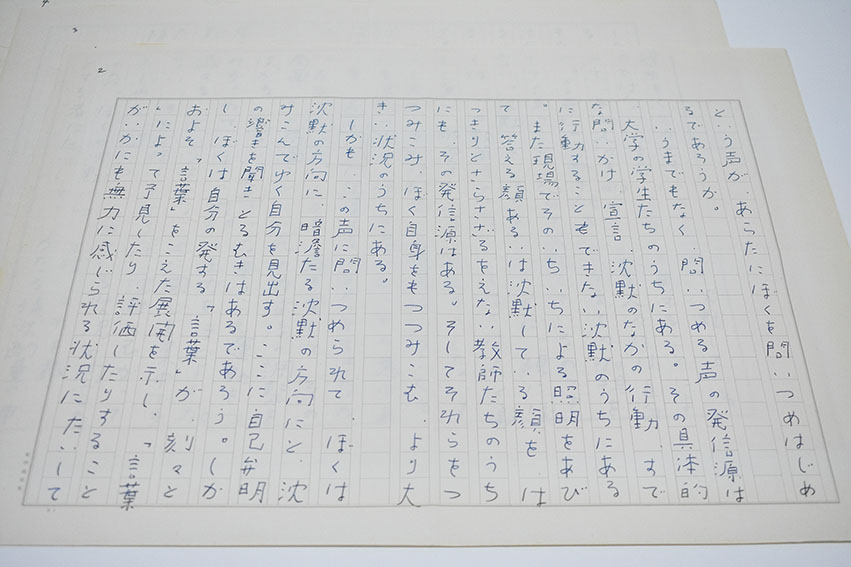 4
3
2
という声が、あらたにぼくを問いつめはじめ
るであろうか。
いうまでもなく、問いつめる声の発信源は
大学の学生たちのうちにある。その具体的
な問いかけ、宣言、沈黙のなかの行動、すで
に行動することもできない沈黙のうちにある
。また現場でそのいちいちによる照明をあび
て、答える顔あるいは沈黙している顔を、は
っきりとさらさざるをえない教師たちのうち
にも、その発信源はある。そしてそれらをつ
つみこみ、ぼく自身をもつつみこむ、より大
きい状況のうちにある。
しかも、この声に問いつめられて、ぼくは
沈黙の方向に、暗澹たる沈黙の方向にと、沈
みこんでゆく自分を見出す。ここに自己弁明
の響きを聞きとるむきはあるであろう。しか
し、ぼくは自分の発する「言葉」が、刻々と
およそ「言葉」をこえた展開を示し、「言葉
」によって予見したり、評価したりすること
がいかにも無力に感じられる状況にたいして